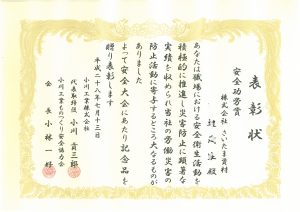 表彰状
安全功労賞
株式会社 さいたま資材
殿
あなたは職場における安全衛生活動を
積極的に推進し災害防止に顕著な
実績を収められ当社の労働災害の
防止活動に寄与するところ大なるものが
ありました
よって安全大会にあたり記念品を
贈り表彰します
平成二十八年七月十三日
小川工業株式会社
代表取締役 小川貢三郎
小川工業ものづくり安全協力会
会長 小林一好